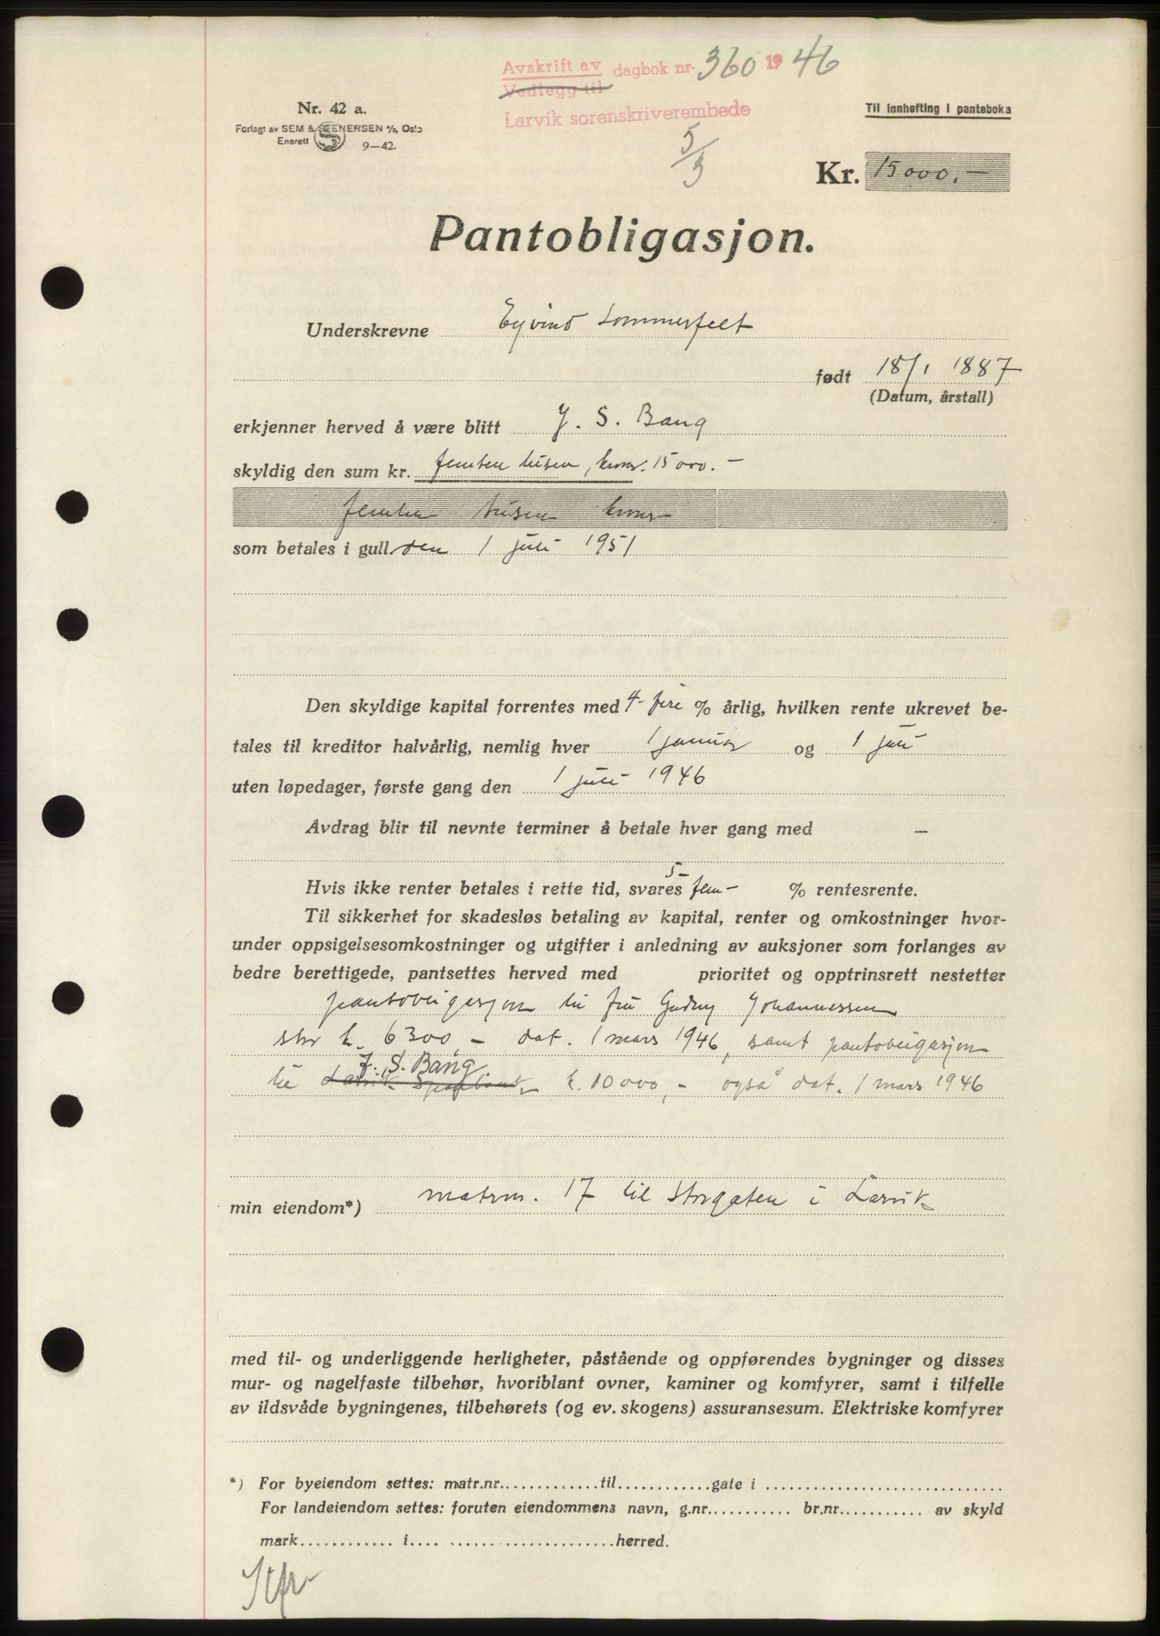 Avskrift av dagbok nr. 360 1946
Vedlegg til
Larvik sorenskriverembede
5/3
Nr. 42 a.
Forlagt av SEM & STENERSEN A/S, Oslo
Enerett 9-42.
Til innhefting i panteboka
Kr. 15000.-
Pantobligasjon.
Underskrevne Eyvind Sommerfelt
født 18/1 1887
(Datum, årstall)
erkjenner herved å være blitt J. S. Bang
skyldig den sum kr. femten tusen, kroner. 15000.-
femten tusen kroner
som betales i gull. den 1 juli 1951
Den skyldige kapital forrentes med 4- fire % årlig, hvilken rente ukrevet be-
tales til kreditor halvårlig, nemlig hver 1 januar og 1 juli
uten løpedager, første gang den 1 juli 1946
Avdrag blir til nevnte terminer å betale hver gang med -
Hvis ikke renter betales i rette tid, svares 5- fem- % rentesrente.
Til sikkerhet for skadesløs betaling av kapital, renter og omkostninger hvor-
under oppsigelsesomkostninger og utgifter i anledning av auksjoner som forlanges av
bedre berettigede, pantsettes herved med prioritet og opptrinsrett nestetter
pantobligasjon til fru Gudny Johannessen
stor k. 6300 - dat. 1 mars 1946, samt pantobligasjon
til J. S. Bang k. 10000,- også dat. 1 mars 1946
min eiendom*) matrnr. 17 til Storgaten i Larvik
med til- og underliggende herligheter, påstående og oppførendes bygninger og disses
mur- og nagelfaste tilbehør, hvoriblant ovner, kaminer og komfyrer, samt i tilfelle
av ildsvåde bygningenes, tilbehørets (og ev. skogens) assuransesum. Elektriske komfyrer
*) For byeiendom settes: matr.nr. til gate i
For landeiendom settes: foruten eiendommens navn, g.nr. br.nr. av skyld
mark i herred.